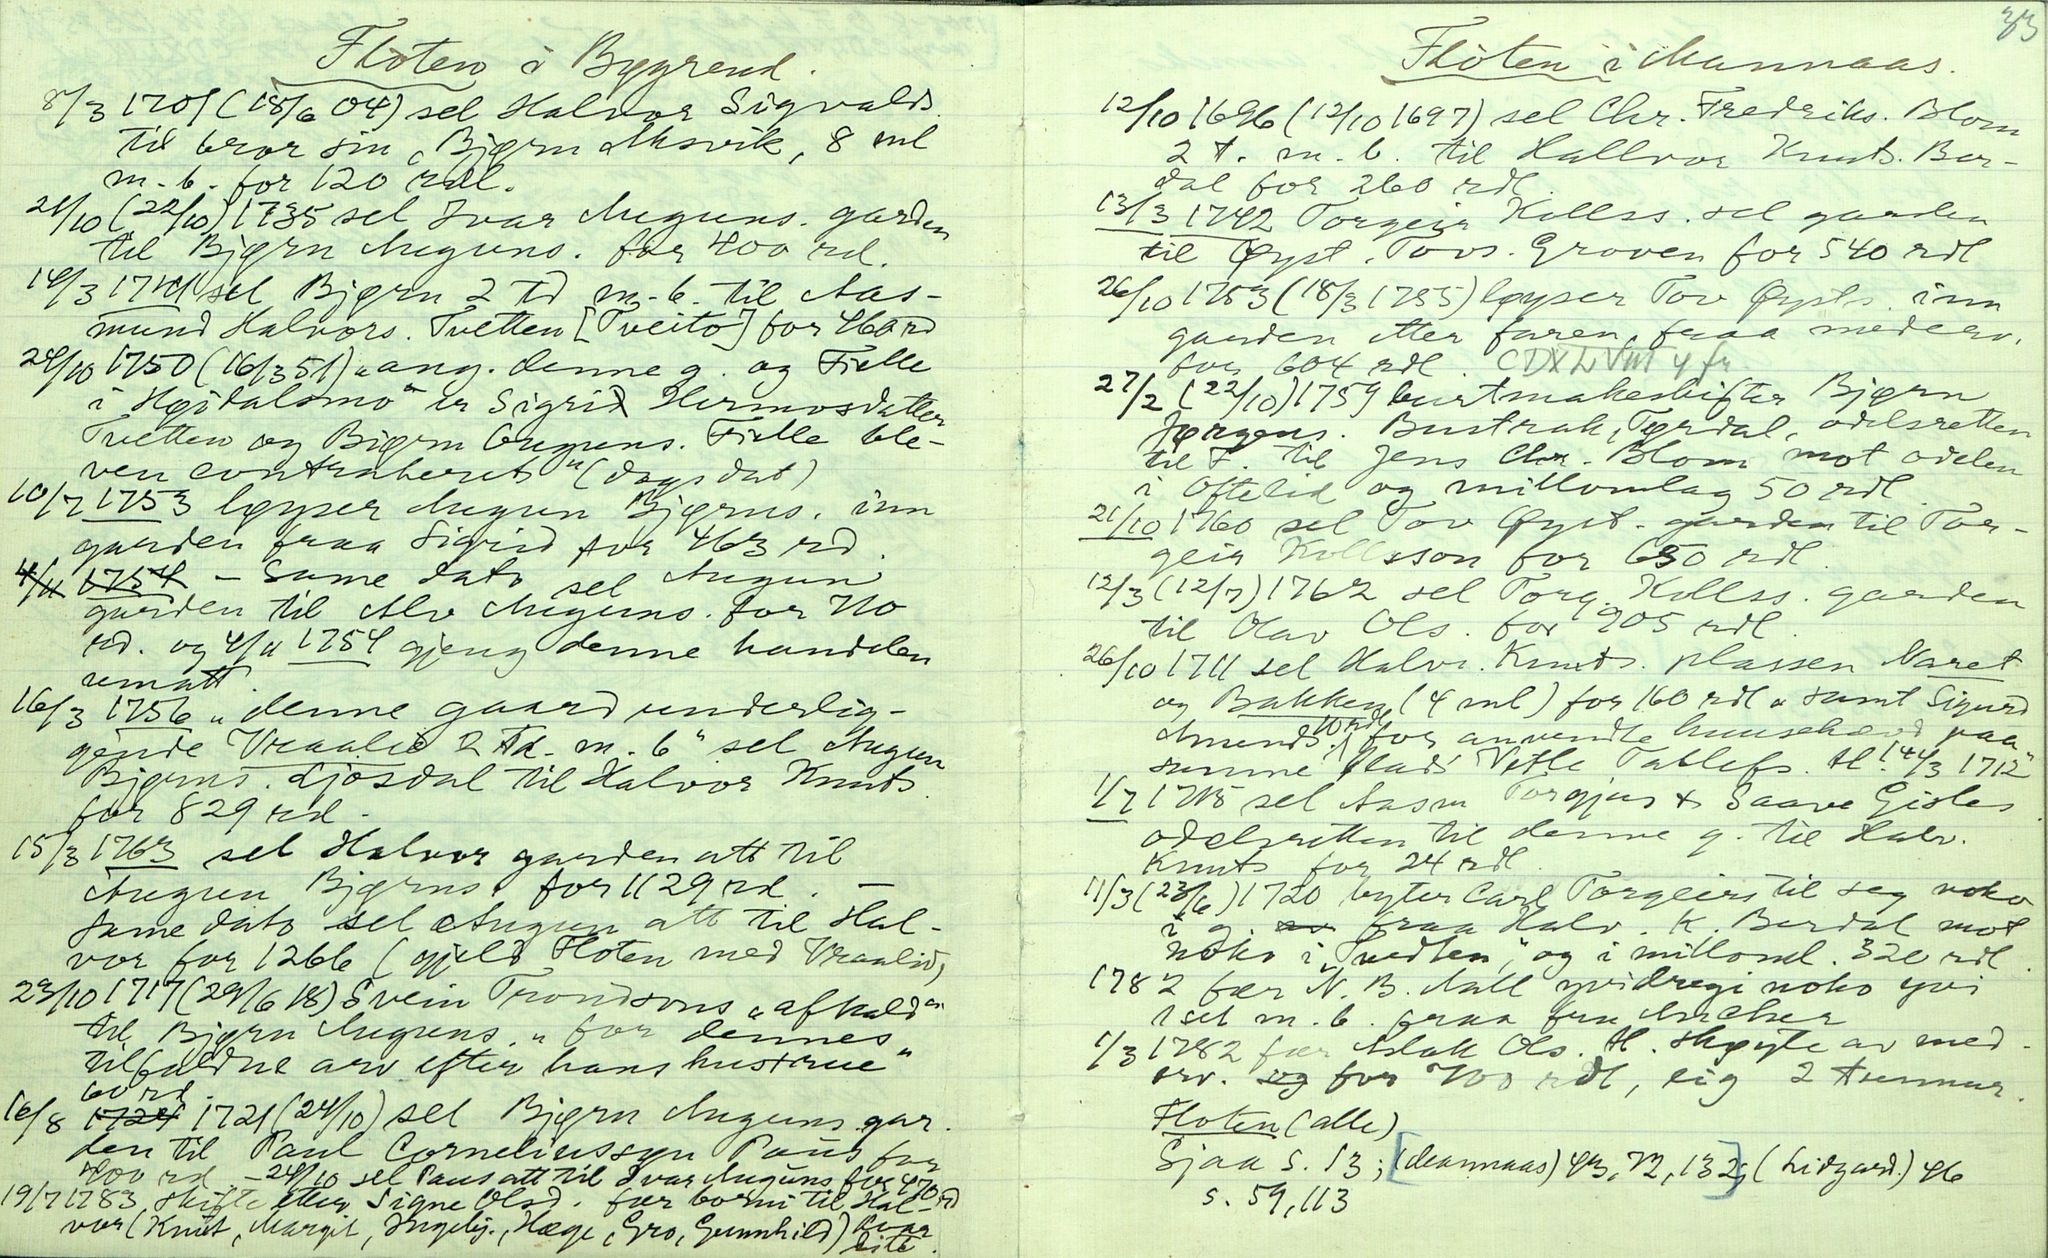 Floten i Bygrend.
8/3 1701 (18/6 04) sel Halvor Sigvalds.
til bror sin, Bjørn Aasvik, 8 ml
m.b. for 120 rdl.
21/10 (22/10) 1735 sel Ivar Auguns. garden
til Bjørn Auguns. for 400 rd.
14/3 1741 sel Bjørn 2 td m.b. til Aas-
mund Halvors. Tvetten [Tveito] for 460 rd
24/10 1750 (16/3 51) "ang. denne g. og Fielle
i Høidalsmo" er Sigrid Hermosdatter
Tvetten og Biørn Auguns. Fielle ble-
ven contraheret" (dags dat)
10/7 1753 løyser Augun Bjørns. inn
garden fraa Sigrid for 463 rd.
4/11 1754 - Same dato sel Augun
garden til Alv Auguns. for 710
rd. og 4/11 1754 gjeng denne handelen
umatt.
16/3 1756 "denne gaard underlig-
gende Vraalie 2 Td. m.b" sel Augun
Bjørns. Ljosdal til Halvor Knuts.
for 829 rd.
15/3 1763 sel Halvor garden att til
Augun Bjørns. for 1129 rd. -
Same dato sel Augun att til Hal-
vor for 1266 (gjeld Floten med Vraalid)
23/10 1717 (29/6 18) Svein Trondsons "afkald"
til Bjørn Auguns. "for dennes
tilfaldne arv efter hans hustrue"
60 rd.
16/8 1724 1721 (24/10) sel Bjørn Auguns. gar-
den til Paul Corneliussøn Paus for
400 rd. - 24/10 sel Paus att til Ivar Auguns. for 470 rd
19/7 1783 skifte etter Signe Olsd. fær borni til Hal-
vor (Knut, Margit, Ingebj., Hæge, Gro, Gunnhild) kvar
sitt.
33
Floten i Mannaas.
12/10 1696 (12/10 1697) sel Chr. Fredriks. Blom
2 t. m.b. til Hallvor Knuts. Bær-
dal for 260 rdl.
13/3 1742 Torgeir Kollss. sel garden
til Øyst. Tovs. Groven for 540 rdl
26/10 1753 (18/3 1755) løyser Tov Øysts. inn
garden etter faren, fraa mederv.
for 604 rdl.
27/2 (22/10) 1759 burtmakeskifter Bjørn
Jørgens. Bustrak, Tørdal, odelsretten
til F. til Jens Chr. Blom mot odelen
i Oftelid og millomlag 50 rdl.
21/10 1760 sel Tov Øyst. garden til Tor-
geir Kollsson for 650 rdl.
12/3 (12/7) 1762 sel Torg. Kollss. garden
til Olav Ols. for 905 rdl.
26/10 1711 sel Halv. Knuts. plassen Naret
og Bakken (4 ml) for 160 rdl "samt Sigurd
Amunds. 10 rdl for anvendte huusehævd paa
samme Plads" Vetle Tallefs. tl. 14/3 1712
1/7 1715 sel Aasm Torgjus & Saave Gisles.
odelsretten til denne g. til Halv.
Knuts for 24 rdl.
11/3 (23/6) 1720 byter Carl Torgeirs til seg noko
i g. fraa Halv. K. Bærdal mot
noko i "Tvedten", og i milloml. 320 rdl.
1782 fær N. B. Aall yvidregi noko yvi
1 set m.b. fraa fru Ancher
1/3 1782 fær Aslak Ols. tl. skøyte av med-
erv. og for 700 rdl, eig 2 tunnur.
Floten (alle)
Sjaa s. 13; [(Mannaas) 43, 72, 132]; (Lidgard.) 46
s. 59, 113